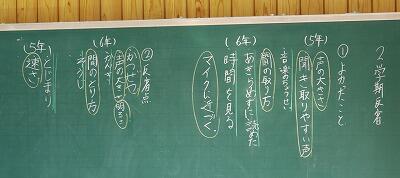 2学期反省
①よかったこと
(5年)
声の大きさ
聞き取りやすい声
音楽のちょうせい
間の取り方
(6年)
あきらめずに読めた
時間を見る
マイクにちかづく
②反省点
(6年)
かつぜつ
声の大きさ 明るさ
かんき
間のとり方
そうじ
(5年)
とじまり
速さ